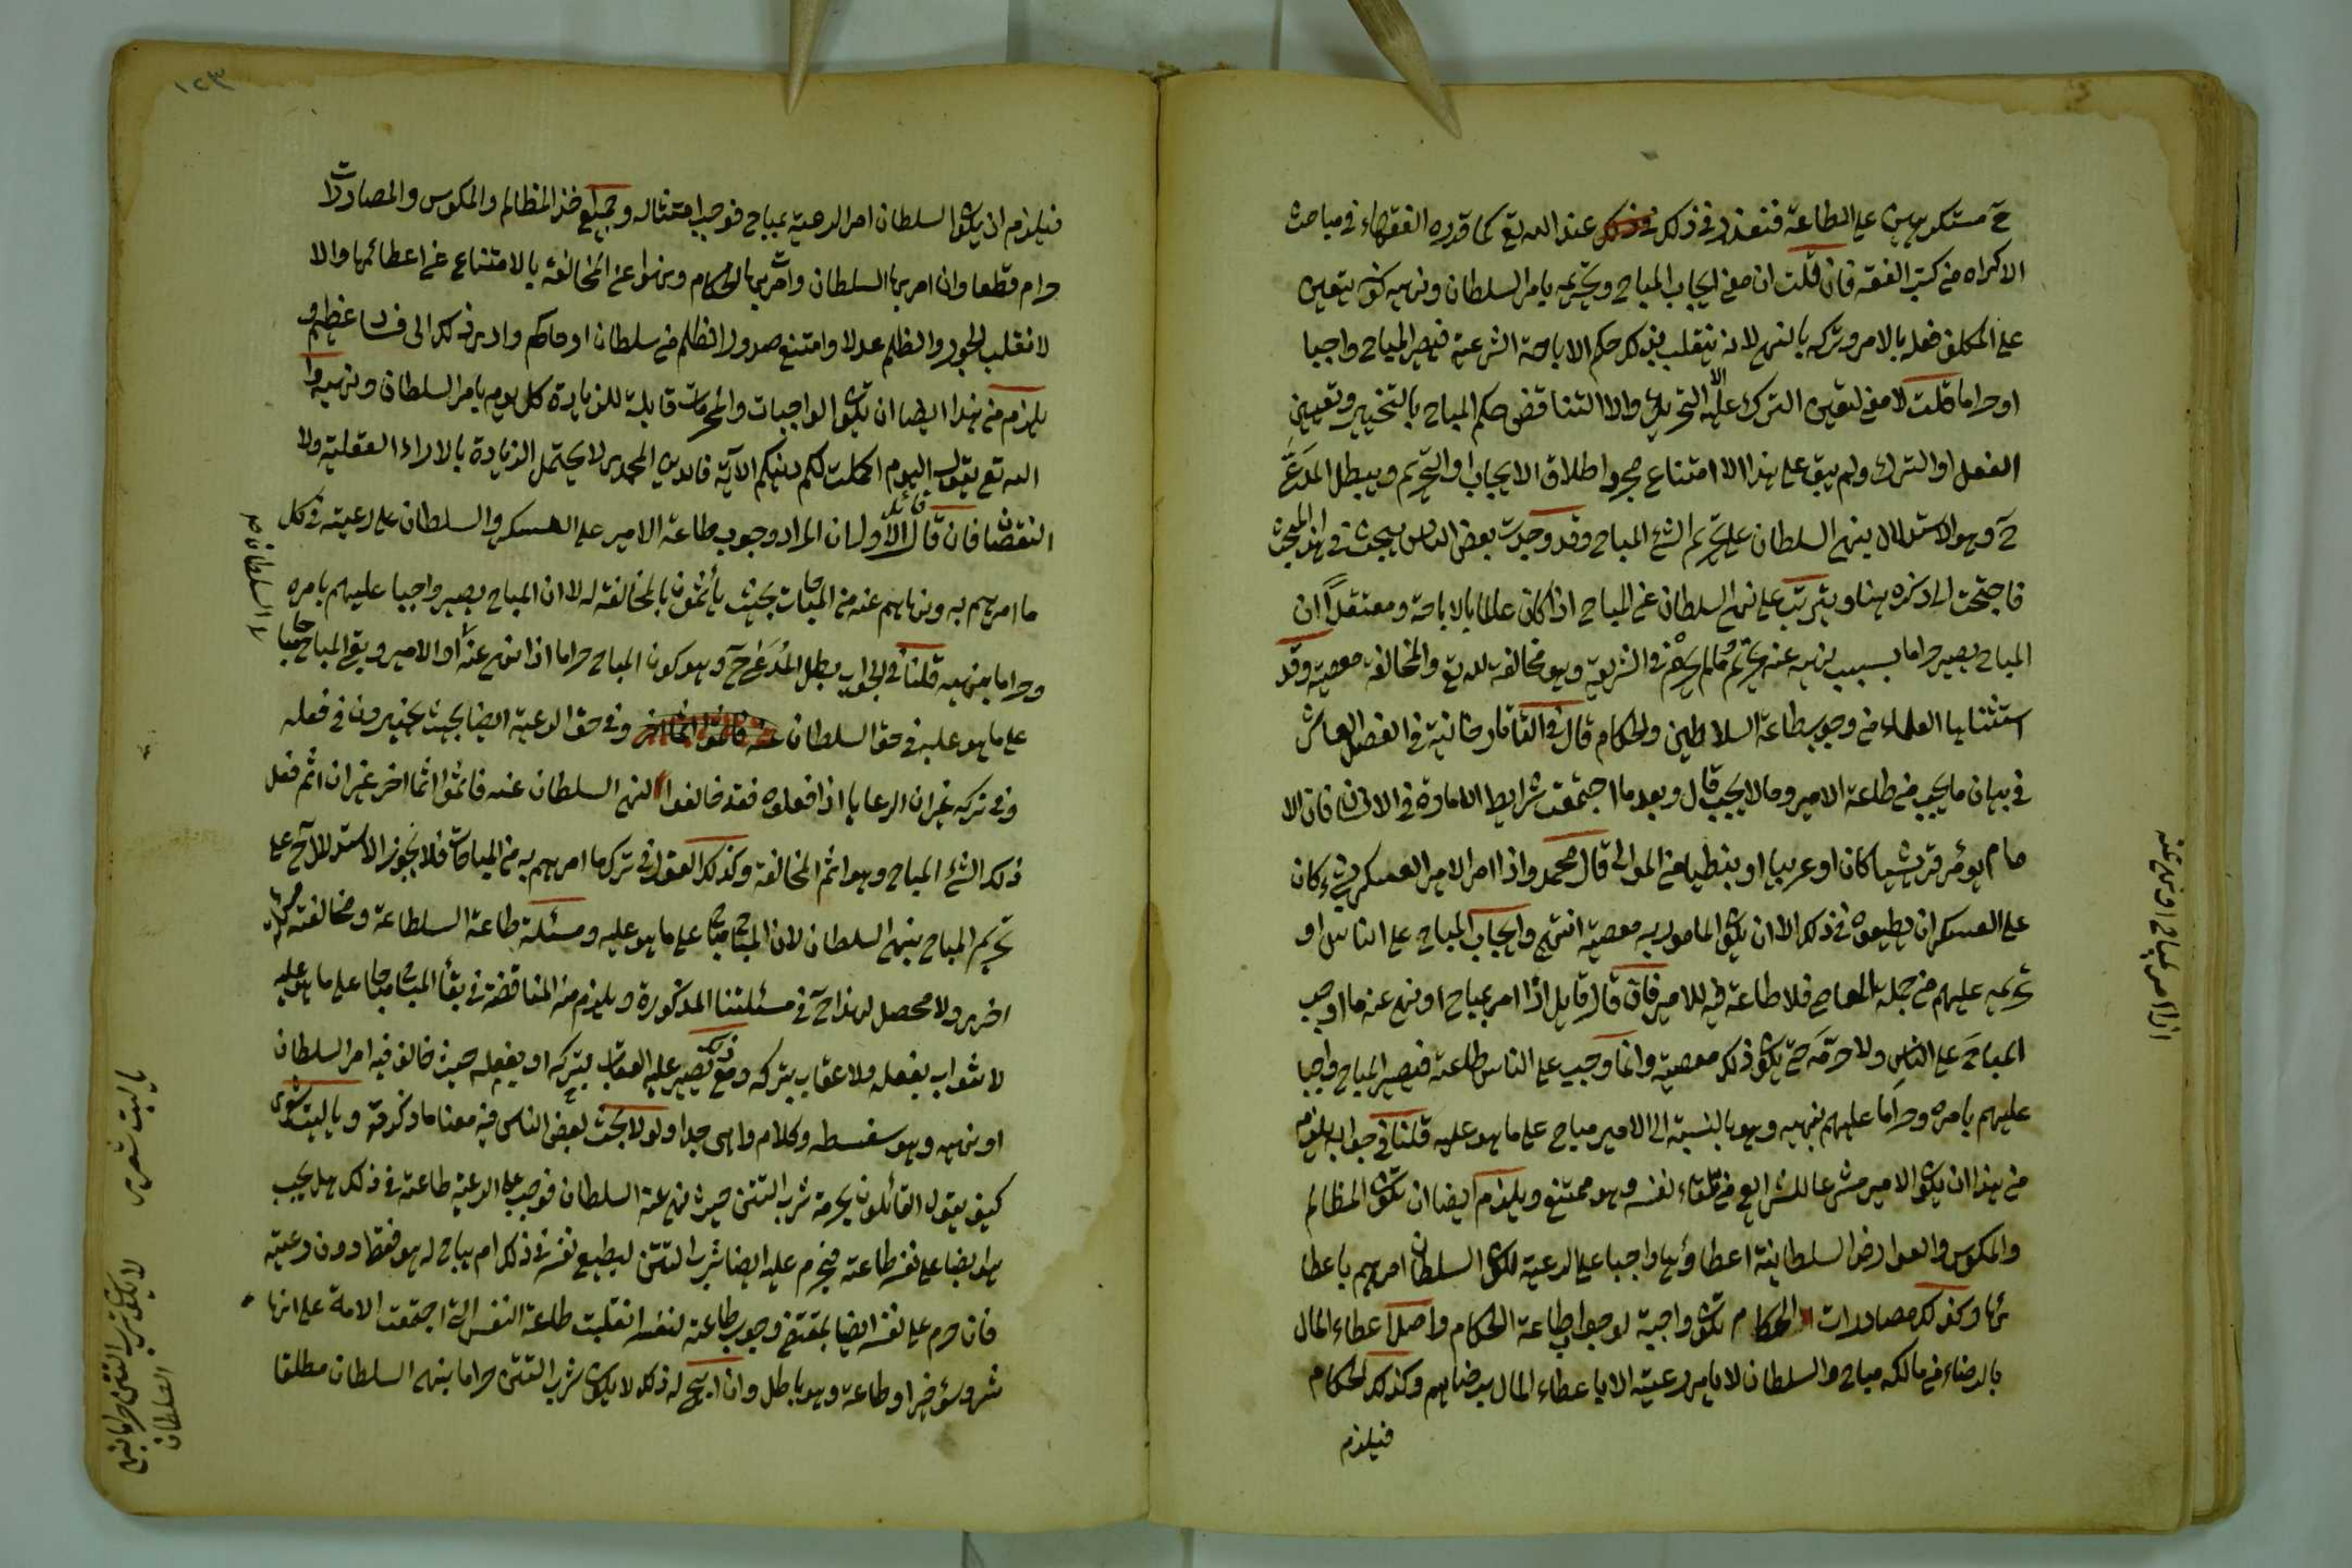 ح مستكرهين على الطاعة فنعذر في ذلك عند الله تع كما قرره الفقهاء في مباحث
الاكراه من كتب الفقه فان قلت ان معنى ايجاب المباح وتحريمه بامر السلطان ونهيه كونه يتعين
على المكلف فعله بالامر وتركه بالنهي لانه ينقلب بذلك حكم الاباحة الشرعية فيصير المباح واجبا
او حراما قلت لا معنى لتعين الترك عليه الا التحريم والا لتناقض حكم المباح بالتخيير وتعيين
الفعل او الترك ولم يبق على هذا الا امتناع مجرد اطلاق الايجاب او التحريم ويبطل المدعى
ح وهو الاستدلال بنهي السلطان على تحريم الشئ المباح وقد وجدت بعض الناس يبحث في هذا المبحث
فاحتجت الى ذكره هنا ويترتب على نهي السلطان عن المباح اذا كان عالما بالاباحة ومعتقدا ان
المباح يصير حراما بسبب نهيه عنه تحريم ما لم يحرم في الشريعة وهو مخالفة لله تع والمخالفة معصية وقد
استثناها العلماء من وجوب طاعة السلاطين والحكام قال في التاتارخانية في الفصل العاشر
في بيان ما يجب من طاعة الامير وما لا يجب قال وبعد ما اجتمعت شرايط الامارة في الانسان فان الا
مام يؤمر قرشيا كان او عربيا او نبطيا من الموالي قال محمد واذا امر الامير العسكر بشئ كان
على العسكر ان يطيعوه في ذلك الا ان يكون المامور به معصية انتهى وايجاب المباح على الناس او
تحريمه عليهم من جملة المعاصي فلا طاعة فيه للامير فان قال قايل اذا امر بمباح او نهى عنه ما اوجب
المباح على الناس ولا حرمه حتى يكون ذلك معصية وانما وجب على الناس طاعته فيصير المباح واجبا
عليهم بامره وحراما عليهم بنهيه وهو بالنسبة الى الامير مباح على ما هو عليه قلنا في جوابه يلزم
من هذا ان يكون الامير مشرعا للشرايع من تلقاء نفسه وهو ممتنع ويلزم ايضا ان تكون المظالم
والمكوس والعوارض السلطانية اعطاؤها واجبا على الرعية لكون السلطان امرهم باعطا
ئها وكذلك مصادرات الحكام تكون واجبة لوجوب طاعة الحكام واصل اعطاء المال
بالرضاء من مالكه مباح والسلطان لا يامر رعيته الا باعطاء المال برضاهم وكذلك الحكام
فيلزم
اذا امر بمباح او نهى عنه
١٢٣
فيلزم ان يكون السلطان امر الرعية بمباح فوجب امتثاله وجميع هذه المظالم والمكوس والمصادرات
حرام قطعا وان امر بها السلطان وامر بها الحكام ونهوا عن المخالفة بالامتناع عن اعطائها والا
لانقلب الجور والظلم عدلا وامتنع صدور الظلم من سلطان او حاكم وادى ذلك الى فساد عظيم و
يلزم من هذا ايضا ان تكون الواجبات والمحرمات قابلة للزيادة كل يوم بامر السلطان ونهيه و
الله تع يقول اليوم اكملت لكم دينكم الآية فالدين المحمدي لا يحتمل الزيادة بالاراء العقلية ولا
النقصان فان قال قائل الاول ان المراد وجوب طاعة الامير على العسكر والسلطان على رعيته في كل
ما امرهم به ونهاهم عنه من المباحات بحيث ياثمون بالمخالفة له لا ان المباح يصير واجبا عليهم بامره
وحراما بنهيه قلنا في الجواب بطل المدعى ح وهو كون المباح حراما اذا نهى عنه او الامير وبقي المباح مباحا
على ما هو عليه في حق السلطان وفي حق الرعية ايضا بحيث يخيرون في فعله
وفي تركه غير ان الرعايا اذا فعلوه فقد خالفوا لنهي السلطان عنه فاثموا اثما اخر غير ان اثم فعل
ذلك الشئ المباح وهو اثم المخالفة وكذلك القول في ترك ما امرهم به من المباحات فلا يجوز الاستدلال ح على
تحريم المباح بنهي السلطان لان المباح مباح على ما هو عليه ومسئلة طاعة السلطان ومخالفته مسئلة
اخرى ولا محصل لهذا ح في مسئلتنا المذكورة ويلزم منه المناقضة في بقاء المباح مباحا على ما هو عليه
لا ثواب بفعله ولا عقاب بتركه ومع ذلك يصير عليه العقاب بتركه او بفعله حيث خالف فيه امر السلطان
او نهيه وهو سفسطه وكلام واهي جدا ولولا بحث بعض الناس فيه معنا ما ذكرته ويا ليت شعري
كيف يقول القائلون بحرمة شرب التتن حيث نهى عنه السلطان فوجب على الرعية طاعته في ذلك هل يجب
هو ايضا على نفسه طاعته فيحرم عليه ايضا شرب التتن ليطيع نفسه في ذلك ام يباح له هو فقط دون رعيته
فان حرم على نفسه ايضا بمقتضى وجوب طاعته لنفسه انقلبت طاعة النفس التي اجتمعت الامة على انها
شر وسؤ خيرا وطاعة وهو باطل وان ابيح له ذلك لا يكون شرب التتن حراما بنهي السلطان مطلقا
السلطان
يا ليت شعري
لا يكون شرب التتن حراما بنهي
السلطان